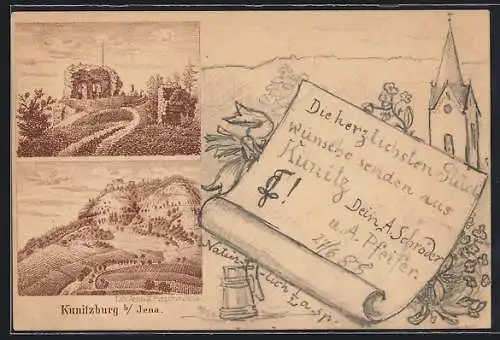 Die herzlichsten Glück
wünsche senden aus
Kunitz
Dein A. Schröder
u. A. Pfeifer.
Kunitzburg b/ Jena.